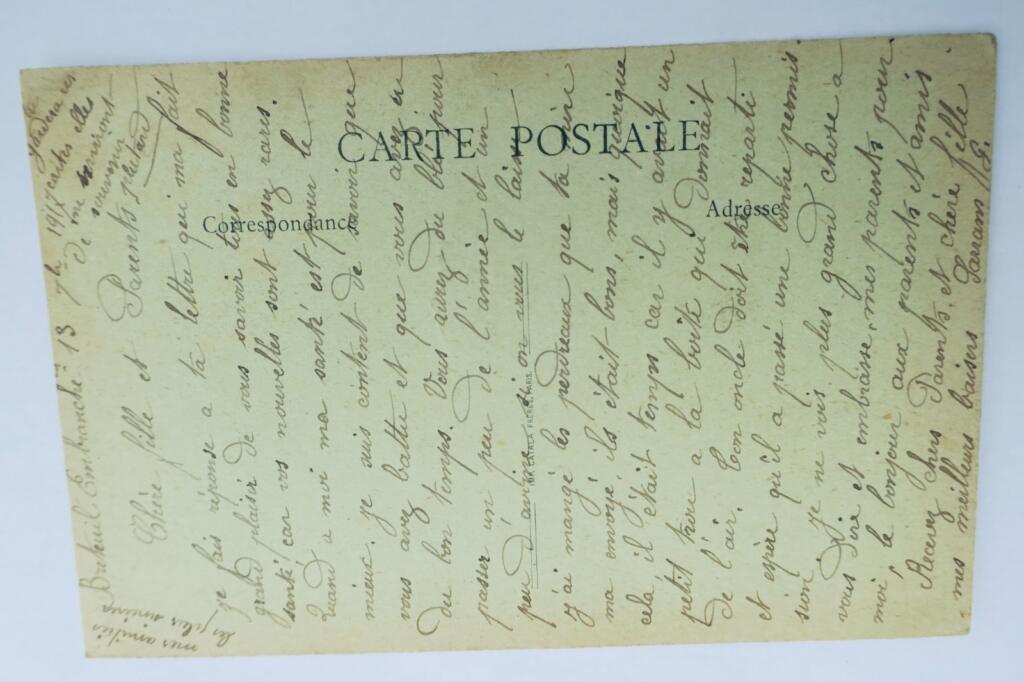 CARTE POSTALE
Correspondance
Adresse
Breteuil Embranché 13 7bre 1917
cartes elle
me serviront
de souvenir
mes amitiés
les plus sincères
Chère fille et Parents
je fais réponse a ta lettre qui ma fait
grand plaisir de vous savoir tous en bonne
santé car vos nouvelles sont assez rares.
Quand a moi ma santé est pour le
mieux. je suis content de savoir que
vous avez battu et que vous avez eu
du bon temps. Vous aurez du blé pour
passer un peu de l'année et un
peu d'avoine si on vous le laisse
j'ai mangé les perdreaux que ta mère
ma envoyé, ils était bons, mais quoique
cela il était temps car il y avait un
petit trou a la boite qui donnait
de l'air. Ton oncle doit être reparti
et espère qu'il a passé une bonne permis
sion je ne vois plus grand chose à
vous dire et embrasse mes parents pour
moi, le bonjour aux parents et amis.
Recevez chers Parents et chère fille
mes meilleurs baisers Sarrans P.